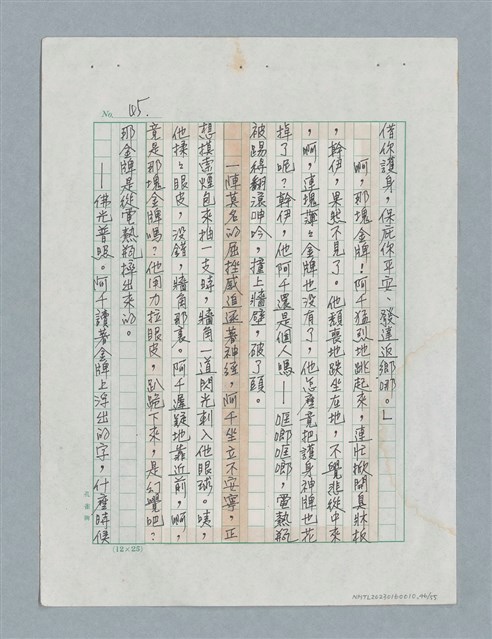 No. 45.
借你護身，保庇你平安、發達返鄉哪。」
啊，那塊金牌！阿千猛烈地跳起來，連忙掀開臭牀板
，幹伊，果然不見了。他頹喪地跌坐在地，不覺悲從中來
，啊，連塊護身金牌也没有了，他怎麼竟把護身神牌也花
掉了呢？幹伊，他阿千還是個人嗎——哐啷哐啷，電熱瓶
被踢得翻滾呻吟，撞上牆壁，破了頭。
一陣莫名的屈挫感追逐著神經，阿千坐立不安寧，正
想摸索煙包來抽一支時，牆角一道閃光刺入他眼球。咦，
他揉揉眼皮，没錯，牆角那裏。阿千遲疑地靠近前，啊，
竟是那塊金牌嗎？他用力拉眼皮，趴跪下來，是幻覺吧？
那金牌是從電熱瓶摔出來的。
——佛光普照。阿千讀著金牌上浮出的字，什麼時候
(12×25)
NMTL20230160010_46/55